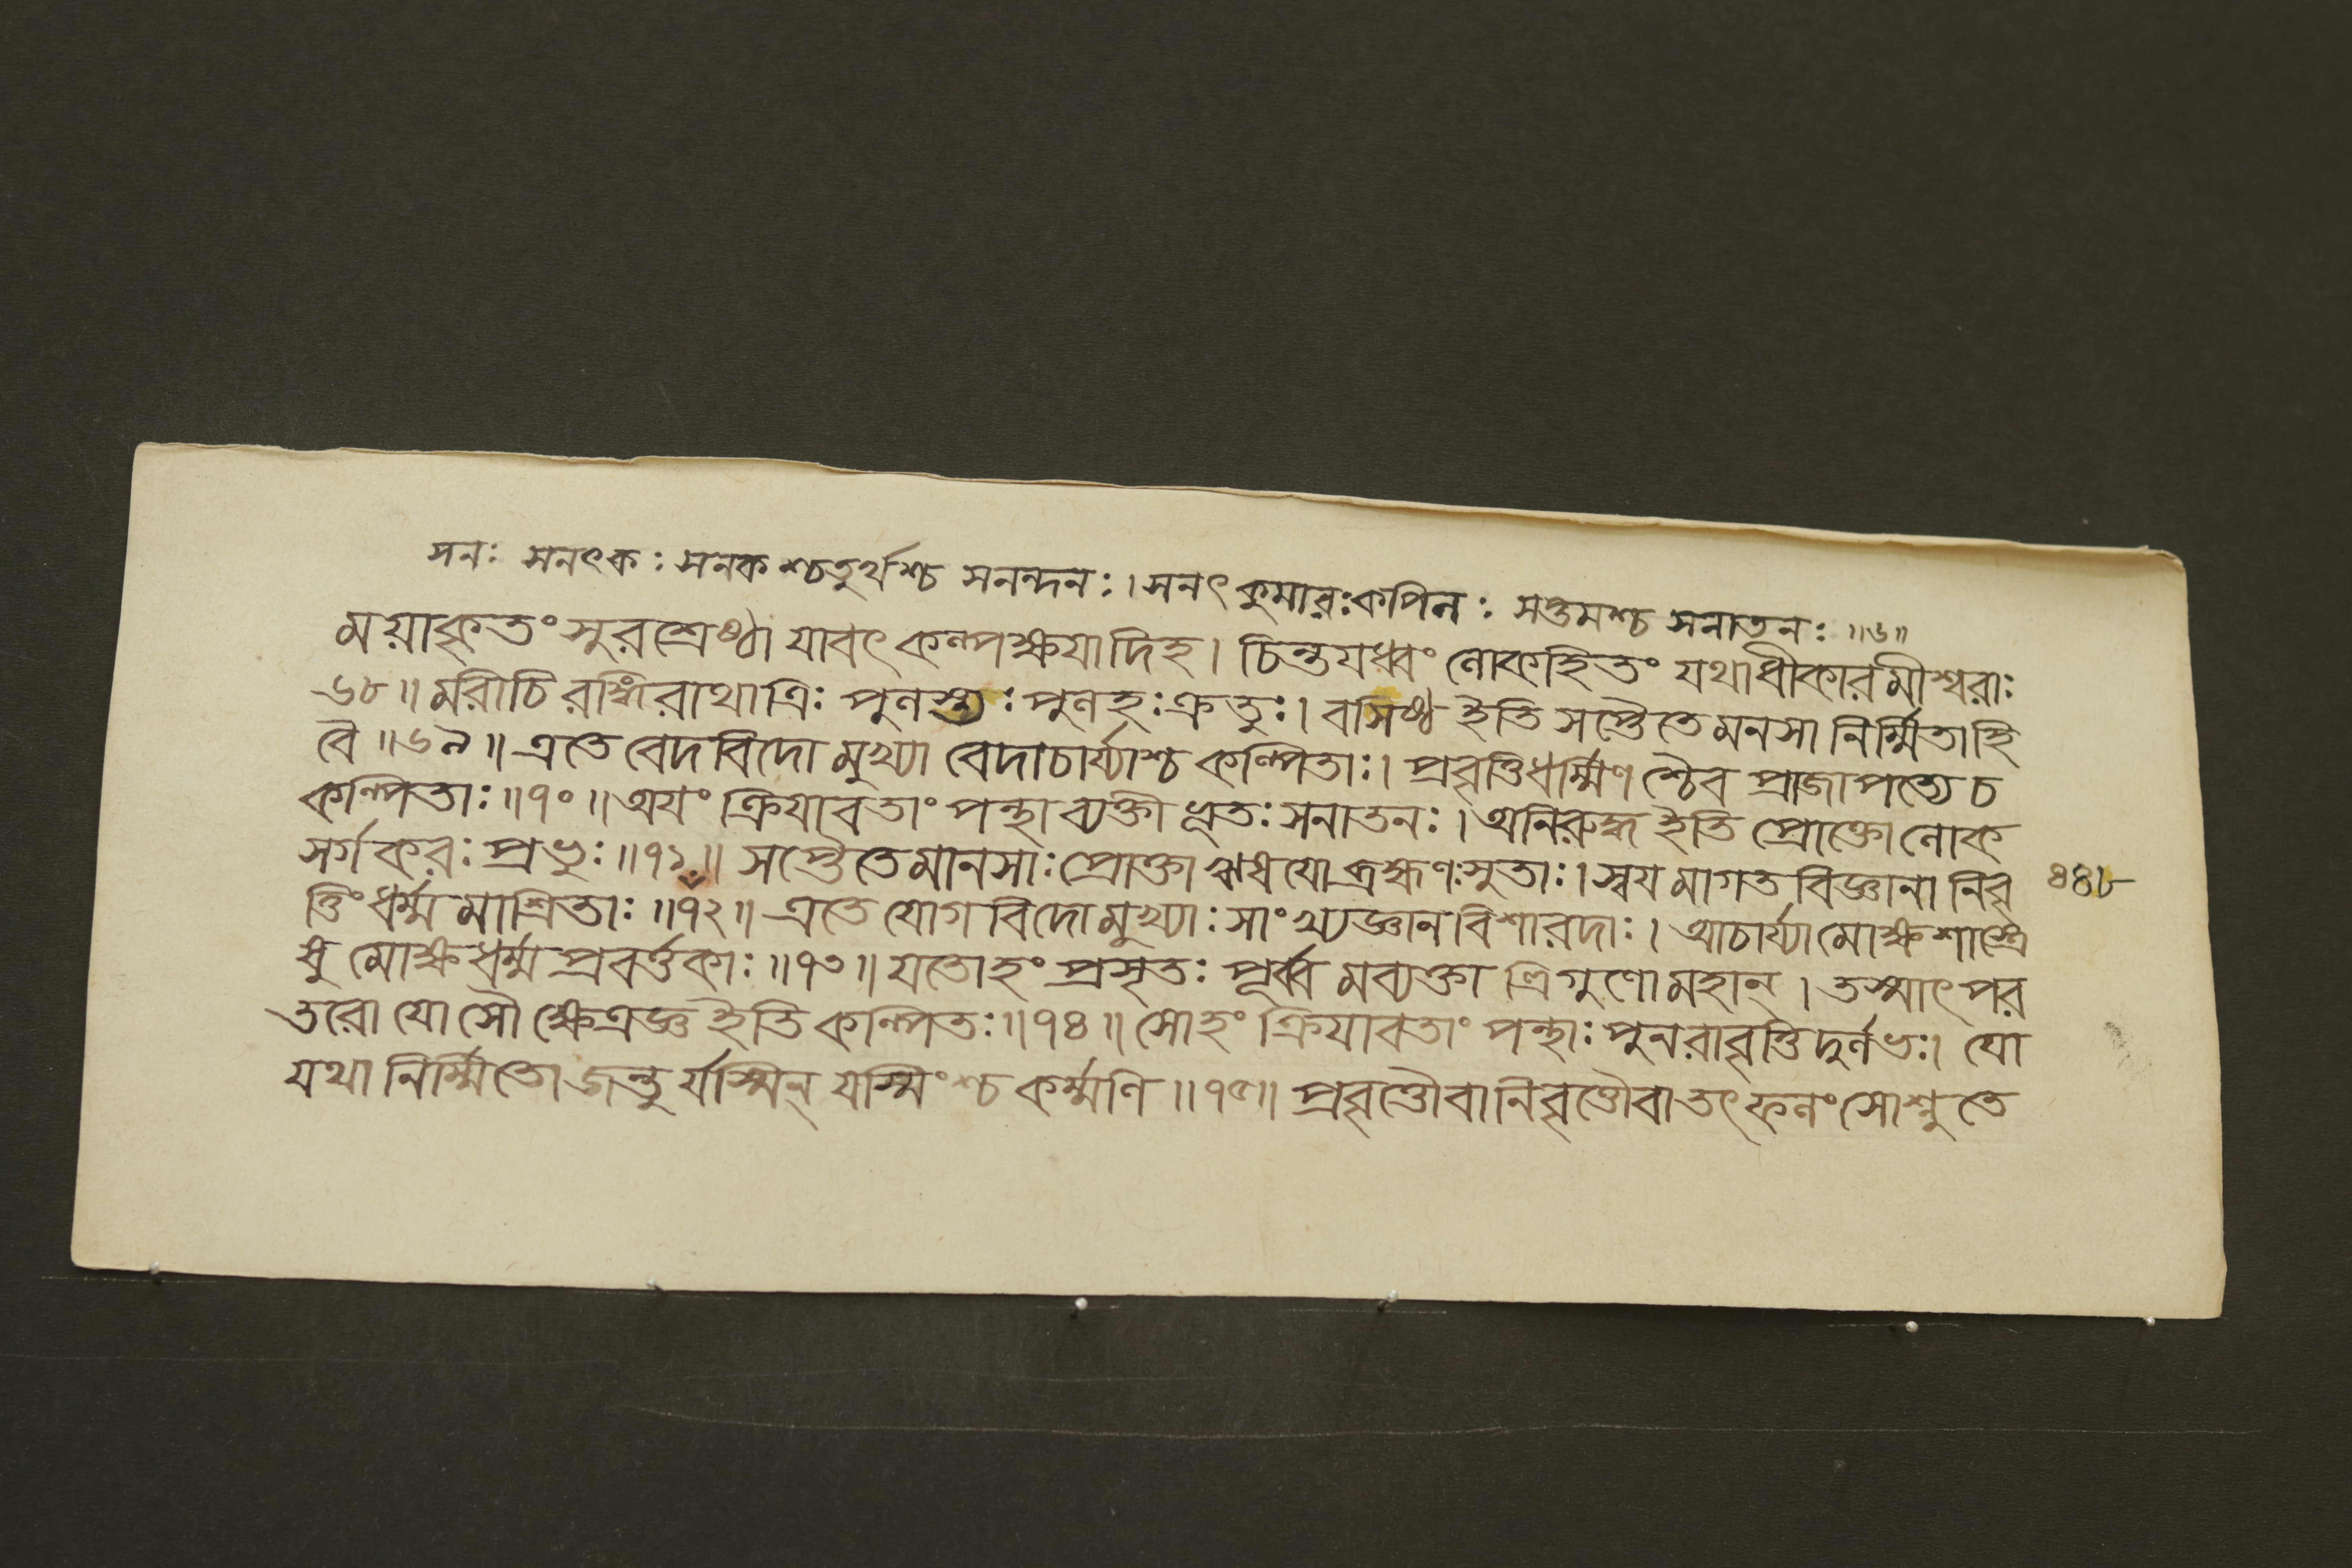 সনঃ সনৎকঃ সনকশ্চতুর্থশ্চ সনন্দনঃ । সনৎকুমারঃ কপিলঃ সপ্তমশ্চ সনাতনঃ ॥৬॥
ময়াকৃতং সুরশ্রেষ্ঠা যাবৎ কল্পক্ষযাদিহ । চিন্তযধ্বং লোকহিতং যথাধীকারমীশ্বরাঃ
৬৮ ॥ মরীচিরঙ্গিরাথাত্রিঃ পুলস্ত্যঃ পুলহঃ ক্রতুঃ । বসিষ্ঠ ইতি সপ্তৈতে মনসা নির্ম্মিতাহি
বৈ ॥ ৬৯ ॥ এতে বেদবিদো মুখ্যা বেদাচার্য্যাশ্চ কল্পিতাঃ । প্রবৃত্তিধর্ম্মিণশ্চৈব প্রাজাপত্যে চ
কল্পিতাঃ ॥ ৭০ ॥ অযং ক্রিযাবতাং পন্থা ব্যক্তীভূতঃ সনাতনঃ । অনিরুদ্ধ ইতি প্রোক্তো লোক
সর্গকরঃ প্রভুঃ ॥ ৭১ ॥ সপ্তৈতে মানসাঃ প্রোক্তা ঋষযো ব্রহ্মণঃ সুতাঃ । স্বযমাগতবিজ্ঞানা নিবৃ
ত্তিং ধর্ম্মমাশ্রিতাঃ ॥ ৭২ ॥ এতে যোগবিদো মুখ্যাঃ সাংখ্যজ্ঞানবিশারদাঃ । আচার্য্যা মোক্ষশাস্ত্রে
ষু মোক্ষধর্ম্মপ্রবর্ত্তকাঃ ॥ ৭৩ ॥ যতোহং প্রসৃতঃ পূর্ব্বমব্যক্তা ত্রিগুণো মহান্ । তস্মাৎ পর
তরো যোসৌ ক্ষেত্রজ্ঞ ইতি কল্পিতঃ ॥ ৭৪ ॥ সোহং ক্রিযাবতাং পন্থাঃ পুনরাবৃত্তিদুর্লভঃ । যো
যথা নির্ম্মিতো জন্তুর্যস্মিন্ যস্মিংশ্চ কর্ম্মণি ॥ ৭৫ ॥ প্রবৃত্তৌ বা নিবৃত্তৌ বা তৎফলং সোশ্নুতে
৪৪৮